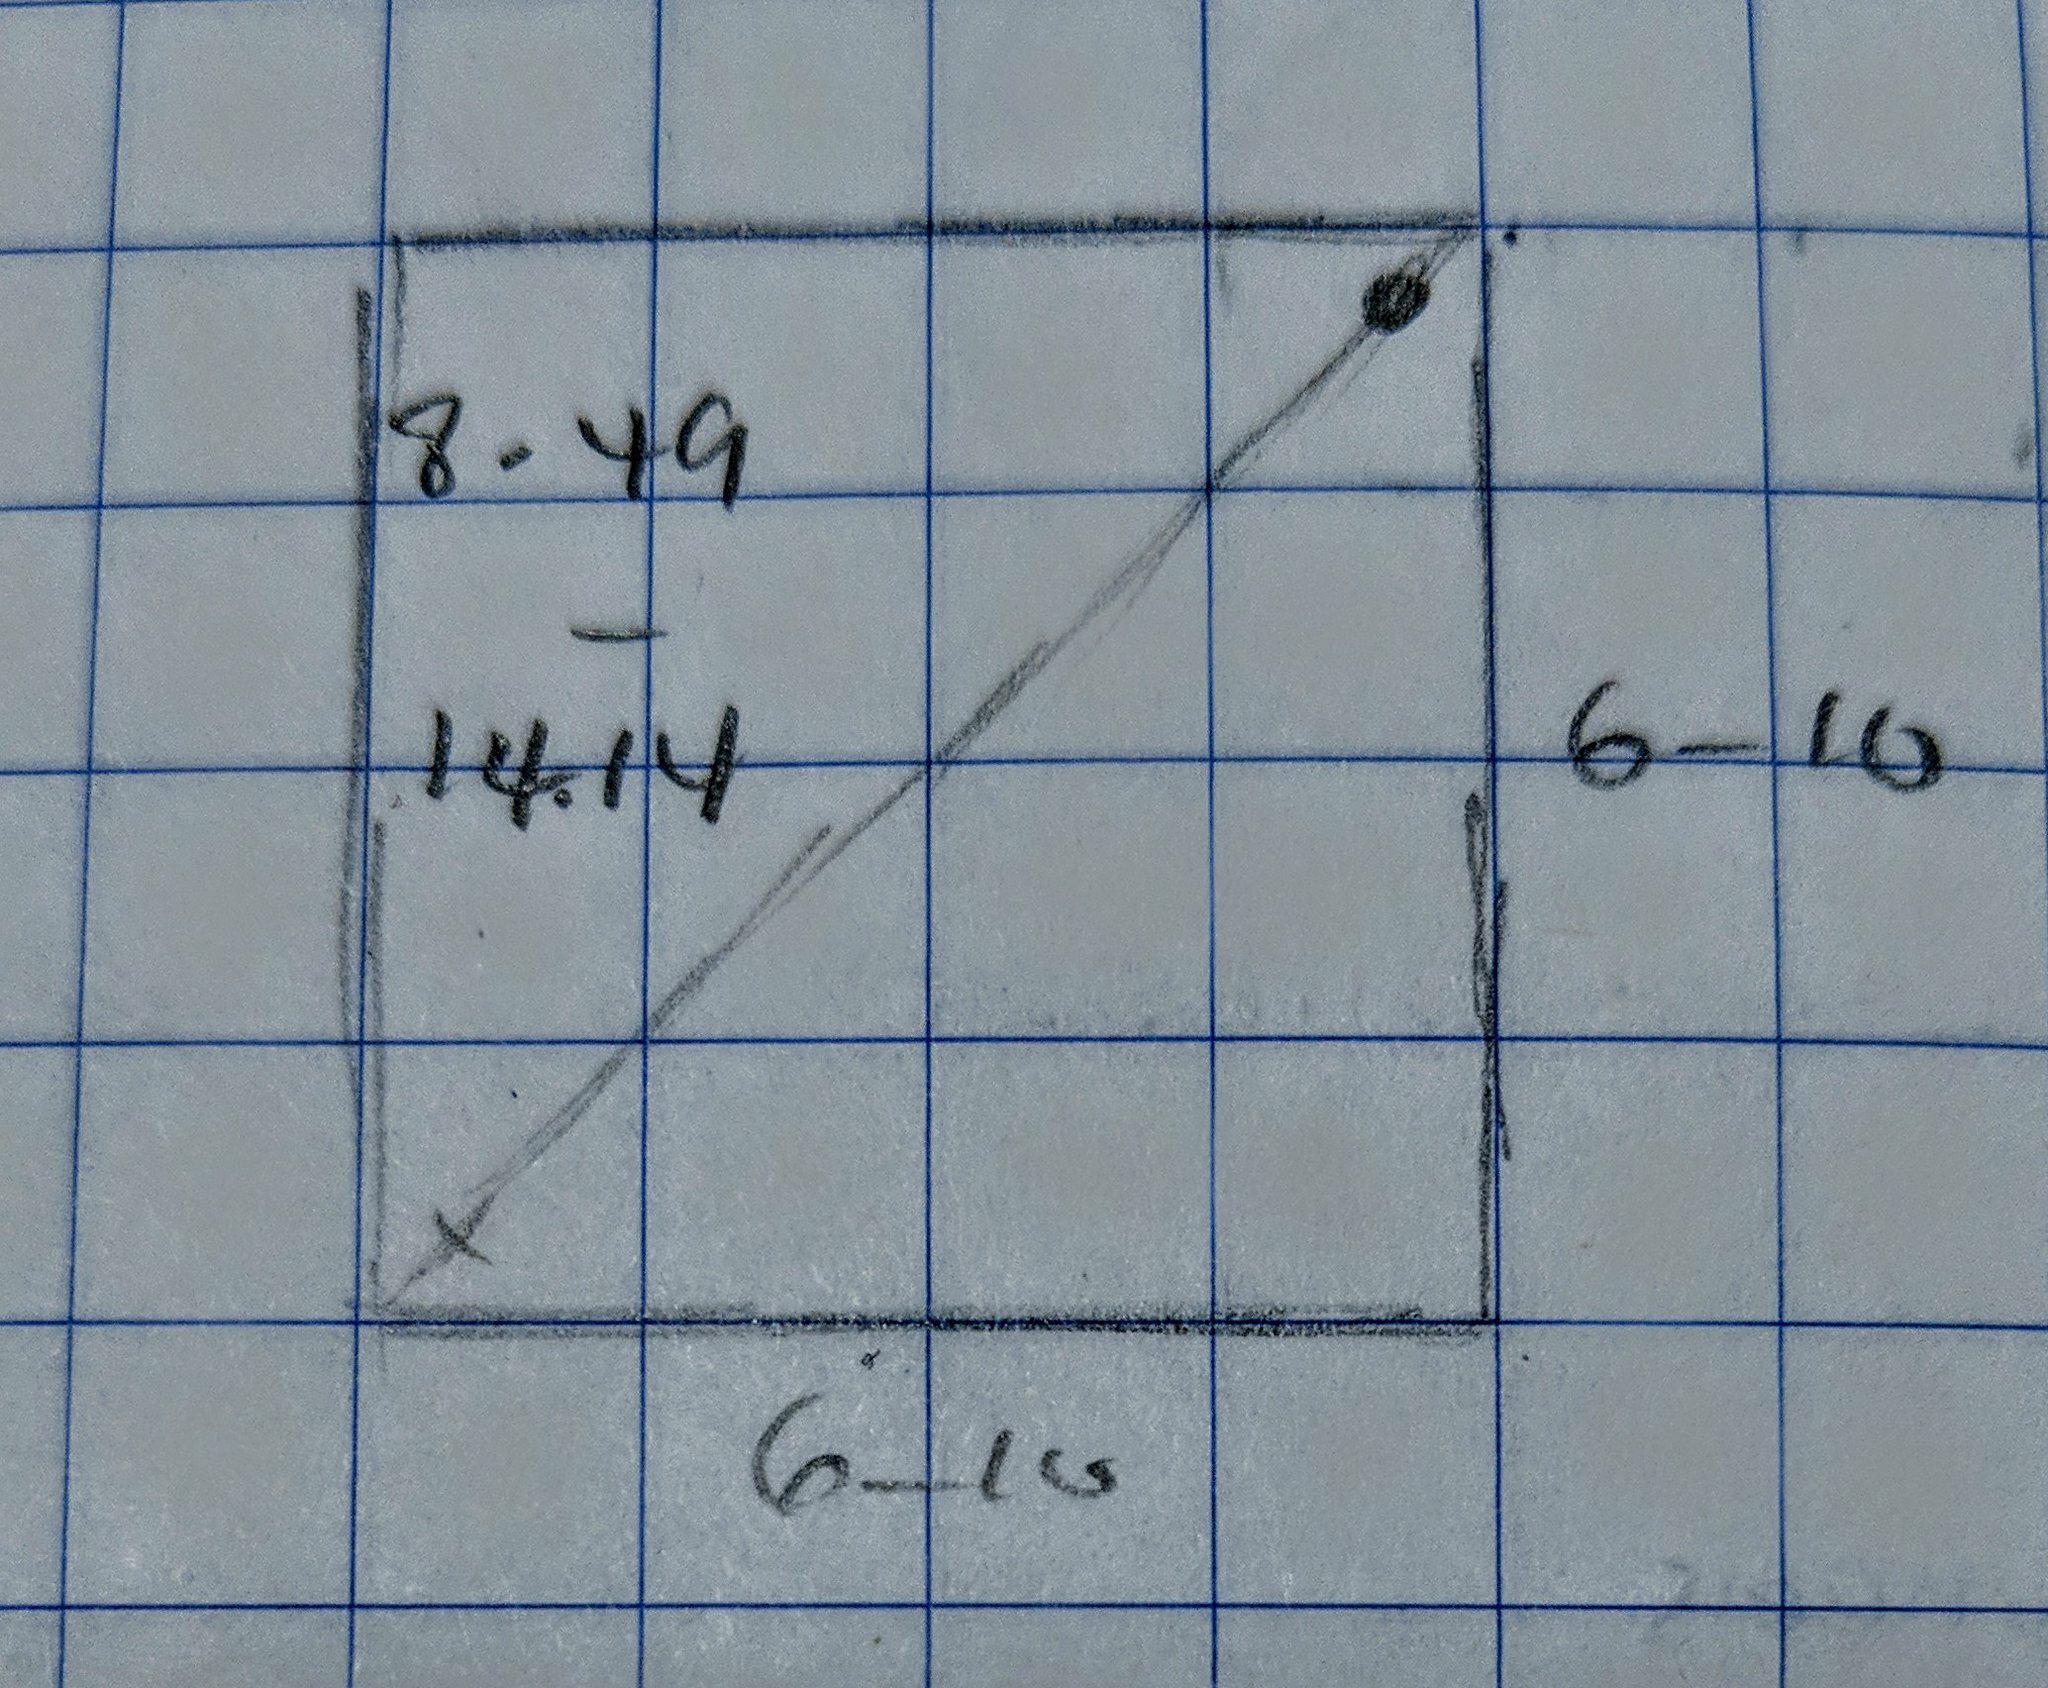 8.49
–
14.14
6–10
6–10